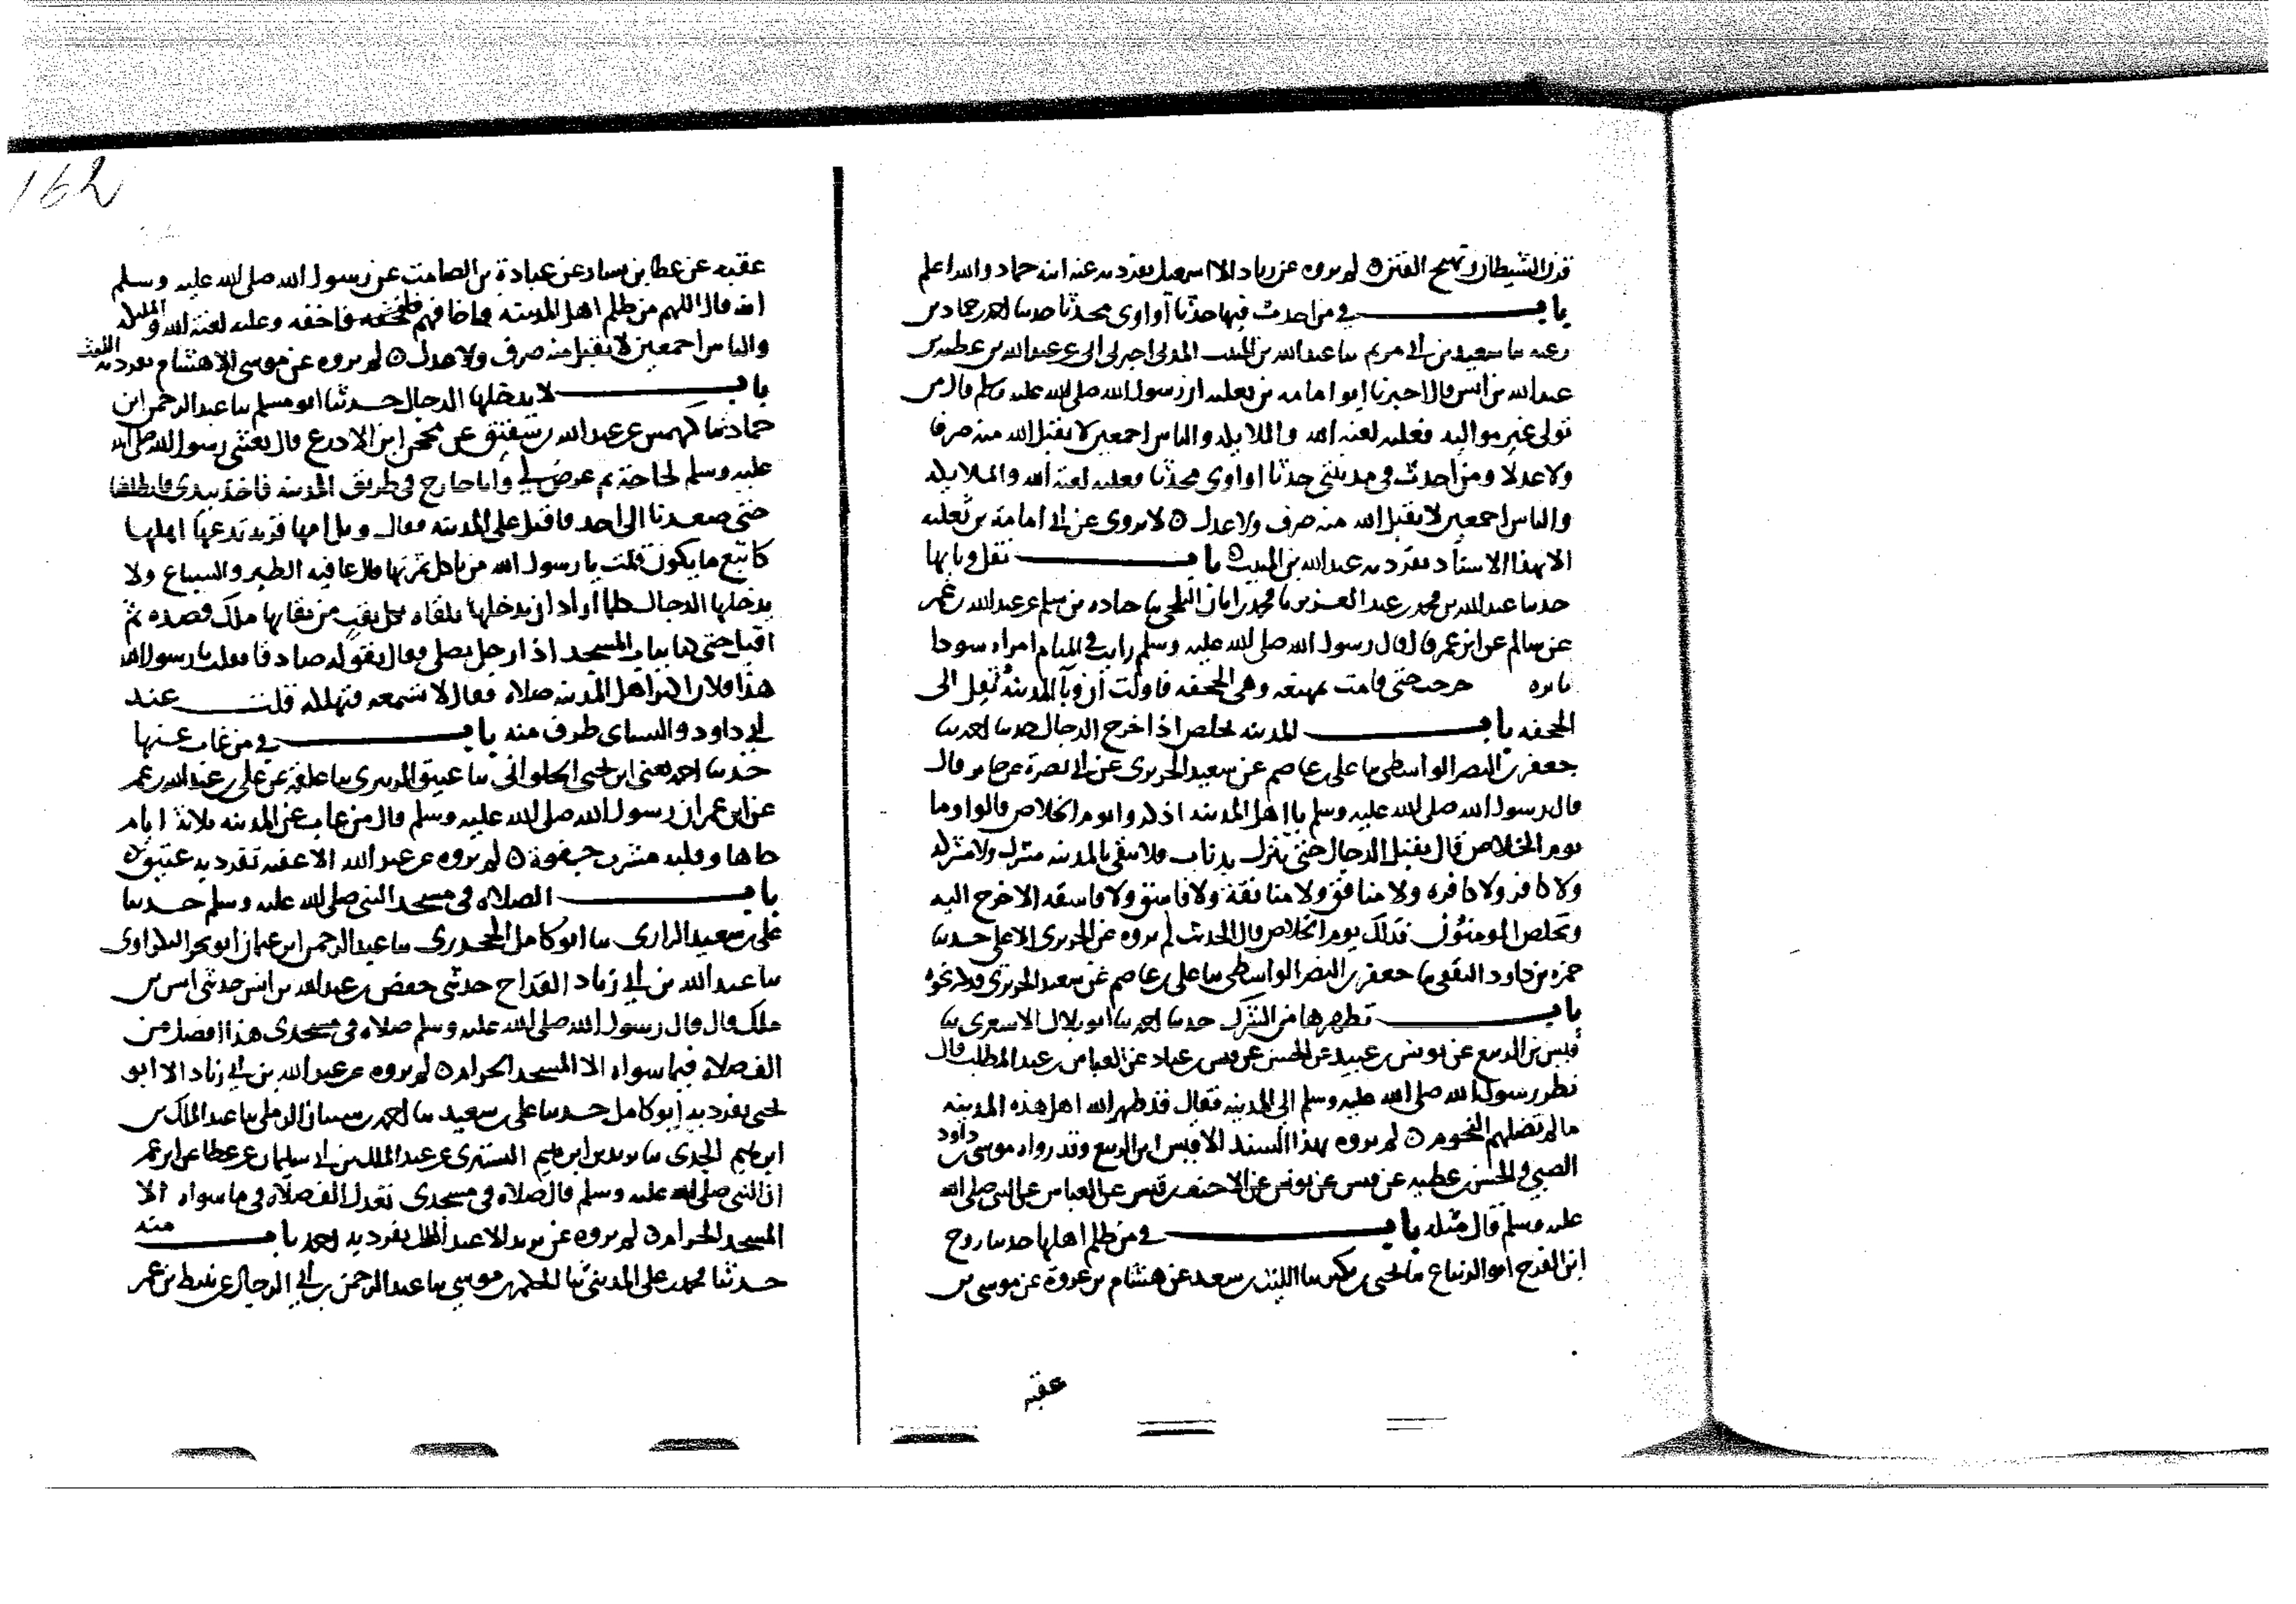 قرن الشيطان وتهيج الفتن ٥ لم يروه عن زياد الا اسمعيل تفرد به عنه ابنه حماد والله اعلم
باب في من احدث فيها حدثا او اوى محدثا حدثنا احمد بن حماد بن
زغبه ثنا سعيد بن ابي مريم ثنا عبدالله بن المنيب المدني اخبرني ابي عن عبدالله بن عطيه بن
عبدالله بن انيس قال اخبرنا ابو امامه بن ثعلبه ان رسول الله صلى الله عليه وسلم قال من
تولى غير مواليه فعليه لعنه الله والملايكه والناس اجمعين لا يقبل الله منه صرفا
ولا عدلا ومن احدث في مدينتي حدثا او اوى محدثا فعليه لعنة الله والملايكه
والناس اجمعين لا يقبل الله منه صرف ولا عدل ٥ لا يروى عن ابي امامة بن ثعلبه
الا بهذا الاسناد تفرد به عبدالله بن المنيب ٥ باب نقل وبايها
حدثنا عبدالله بن محمد بن عبد العزيز ثنا محمد بن ابان البلخي ثنا حاده بن سلم عن عبدالله بن عمر
عن سالم عن ابن عمر قال قال رسول الله صلى الله عليه وسلم رايت في المنام امراه سودا
ثايره خرجت حتى قامت بمهيعه وهي الجحفه فاولت ان وبآ المدينة نُقل الى
الجحفه باب المدينه تخلص اذا خرج الدجال حدثنا احمد ثنا
جعفر بن النضر الواسطي ثنا علي بن عاصم عن سعيد الجريري عن ابي نضرة عن جابر قال
قال رسول الله صلى الله عليه وسلم يا اهل المدينه اذكروا يوم الخلاص قالوا وما
يوم الخلاص قال يقبل الدجال حتى ينزل بذناب فلا يبقى بالمدينه مشرك ولا مشركه
ولا كافر ولا كافره ولا منافق ولا منافقة ولا فاسق ولا فاسقه الا خرج اليه
وتخلص المومنون فذلك يوم الخلاص قال الحديث لم يروه عن الجريري الا علي حدثنا
حمزه بن داود الثقفي ثنا جعفر بن النضر الواسطي ثنا علي بن عاصم عن سعيد الجريري فذكر نحوه
باب تطهيرها من الشرك حدثنا احمد ثنا ابو بلال الاشعري ثنا
قيس بن الربيع عن يونس بن عبيد عن الحسن عن قيس بن عباد عن العباس بن عبد المطلب قال
نظر رسول الله صلى الله عليه وسلم الى المدينه فقال قد طهر الله اهل هذه المدينه
ما لم تضلهم النجوم ٥ لم يروه بهذا السند الا قيس ابن الربيع وقد رواه موسى بن داود
الضبي والحسن بن عطيه عن قيس عن يونس عن الاحنف بن قيس عن العباس عن النبي صلى الله
عليه وسلم قال مثله باب في من ظلم اهلها حدثنا روح
ابن الفرج ابو الزنباع ثنا يحيى بن بكير ثنا الليث بن سعد عن هشام بن عروة عن موسى بن
عقبه
162
عقبه عن عطا بن يسار عن عبادة بن الصامت عن رسول الله صلى الله عليه وسلم
انه قال اللهم من ظلم اهل المدينه واخافهم فاخفه وعليه لعنة الله والملايكه
والناس اجمعين لا يقبل منه صرف ولا عدل ٥ لم يروه عن موسى الا هشام تفرد به الليث
باب لا يدخلها الدجال حدثنا ابو مسلم ثنا عبد الرحمن ابن
حماد ثنا كهمس عن عبدالله بن شقيق عن محجن ابن الادرع قال بعثني رسول الله صلى الله
عليه وسلم لحاجة ثم عرض لي وانا خارج في طريق المدينه فاخذ بيدي فانطلقنا
حتى صعدنا الى احد فاقبل على المدينه فقال ويل امها قرية تدعها اهلها
كاينع ما يكون قلت يا رسول الله من ياكل ثمرتها قال عافيه الطير والسباع ولا
يدخلها الدجال كلما اراد ان يدخلها تلقاه بكل نقب من نقابها ملك فصده ثم
اقبل حتى كنا بباب المسجد اذا رجل يصلي فقال يقوله صادقا فقلت يا رسول الله
هذا فلان اكثر اهل المدينه صلاه فقال لا تسمعه فتهلكه قلت عند
ابي داود والنساي طرف منه باب في من غاب عنها
حدثنا احمد يعني ابن يحيى الحلواني ثنا عتيق الزبيري ثنا عقبه عن علي بن عبدالله بن عمر
عن ابن عمر ان رسول الله صلى الله عليه وسلم قال من غاب عن المدينه ثلاثة ايام
جاها وقلبه مشرب جفوة ٥ لم يروه عن عبدالله الا عقبه تفرد به عتيق ٥
باب الصلاه في مسجد النبي صلى الله عليه وسلم حدثنا
علي بن سعيد الرازي ثنا ابو كامل الجحدري ثنا عبد الرحمن ابن عثمان ابو بحر البكراوي
ثنا عبدالله بن ابي زياد القداح حدثني حفص بن عبدالله بن انس حدثني انس بن
ملك قال قال رسول الله صلى الله عليه وسلم صلاه في مسجدي هذا افضل من
الف صلاه فيما سواه الا المسجد الحرام ٥ لم يروه عن عبدالله بن ابي زياد الا ابو
بحر تفرد به ابو كامل حدثنا علي بن سعيد ثنا احمد بن سنان الرملي ثنا عبد الملك بن
ابرهيم الجدي ثنا يزيد بن ابرهيم التستري عن عبد الملك بن ابي سليمان عن عطا عن ابن عمر
ان النبي صلى الله عليه وسلم قال صلاه في مسجدي تعدل الف صلاه في ما سواه الا
المسجد الحرام ٥ لم يروه عن يزيد الا عبد الملك تفرد به احمد باب منه
حدثنا محمد بن علي المديني ثنا بن موسى ثنا عبد الرحمن بن ابي الرجال عن نبيط بن عمر